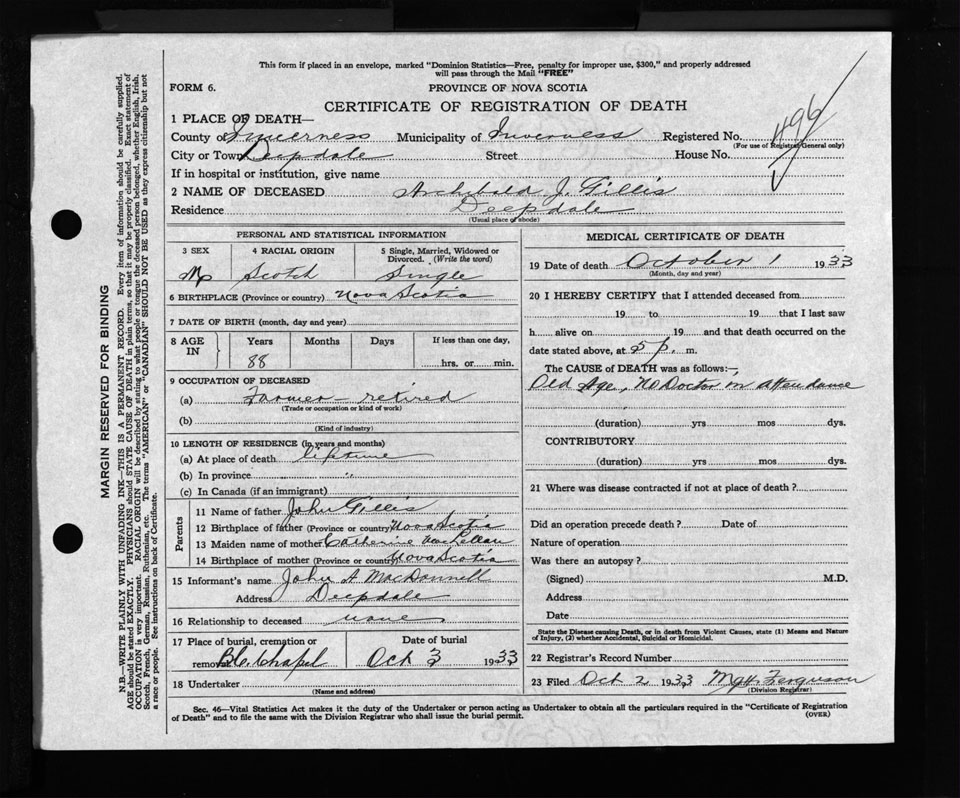 This form if placed in an envelope, marked "Dominion Statistics—Free, penalty for improper use, $300," and properly addressed
will pass through the Mail "FREE"
FORM 6.
PROVINCE OF NOVA SCOTIA
CERTIFICATE OF REGISTRATION OF DEATH
496
1 PLACE OF DEATH—
County of Inverness Municipality of Inverness Registered No.
(For use of Registrar General only)
City or Town Deepdale Street House No.
If in hospital or institution, give name
2 NAME OF DECEASED Archibald J. Gillis
Residence Deepdale
(Usual place of abode)
PERSONAL AND STATISTICAL INFORMATION
3 SEX 4 RACIAL ORIGIN 5 Single, Married, Widowed or
Divorced. (Write the word)
M Scotch Single
6 BIRTHPLACE (Province or country) Nova Scotia
7 DATE OF BIRTH (month, day and year)
8 AGE IN Years Months Days If less than one day,
88 hrs. or min.
9 OCCUPATION OF DECEASED
(a) Farmer — retired
(Trade or occupation or kind of work)
(b)
(Kind of industry)
10 LENGTH OF RESIDENCE (in years and months)
(a) At place of death lifetime
(b) In province "
(c) In Canada (if an immigrant)
Parents
11 Name of father John Gillis
12 Birthplace of father (Province or country) Nova Scotia
13 Maiden name of mother Catherine MacLellan
14 Birthplace of mother (Province or country) Nova Scotia
15 Informant's name John A MacDonnell
Address Deepdale
16 Relationship to deceased none
17 Place of burial, cremation or Date of burial
removal Chapel Oct 3 1933
18 Undertaker
(Name and address)
MEDICAL CERTIFICATE OF DEATH
19 Date of death October 1 1933
(Month, day and year)
20 I HEREBY CERTIFY that I attended deceased from
19 to 19 that I last saw
h alive on 19 and that death occurred on
date stated above, at 5 p. m.
The CAUSE of DEATH was as follows:—
Old Age, No Doctor in attendance
(duration) yrs mos dys.
CONTRIBUTORY
(duration) yrs. mos dys.
21 Where was disease contracted if not at place of death?
Did an operation precede death? Date of
Nature of operation
Was there an autopsy?
(Signed) M.D.
Address
Date
State the Disease causing Death, or in death from Violent Causes, state (1) Means and Nature
of Injury, (2) whether Accidental, Suicidal or Homicidal.
22 Registrar's Record Number
23 Filed Oct 2 1933 Ferguson
(Division Registrar)
Sec. 46—Vital Statistics Act makes it the duty of the Undertaker or person acting as Undertaker to obtain all the particulars required in the "Certificate of Registration
of Death" and to file the same with the Division Registrar who shall issue the burial permit.
(OVER)
MARGIN RESERVED FOR BINDING
N.B.—WRITE PLAINLY WITH UNFADING INK—THIS IS A PERMANENT RECORD. Every item of information should be carefully supplied.
AGE should be stated EXACTLY. PHYSICIANS should STATE CAUSE OF DEATH in plain terms, so that it may be properly classified. Exact statement of
OCCUPATION is very important. RACIAL ORIGIN will be described by stating to what people or tongue the deceased person belonged, whether English, Irish,
Scotch, French, German, Russian, Ruthenian, etc. The terms "AMERICAN" or "CANADIAN" SHOULD NOT BE USED as they express citizenship but not
a race or people. See instructions on back of Certificate.